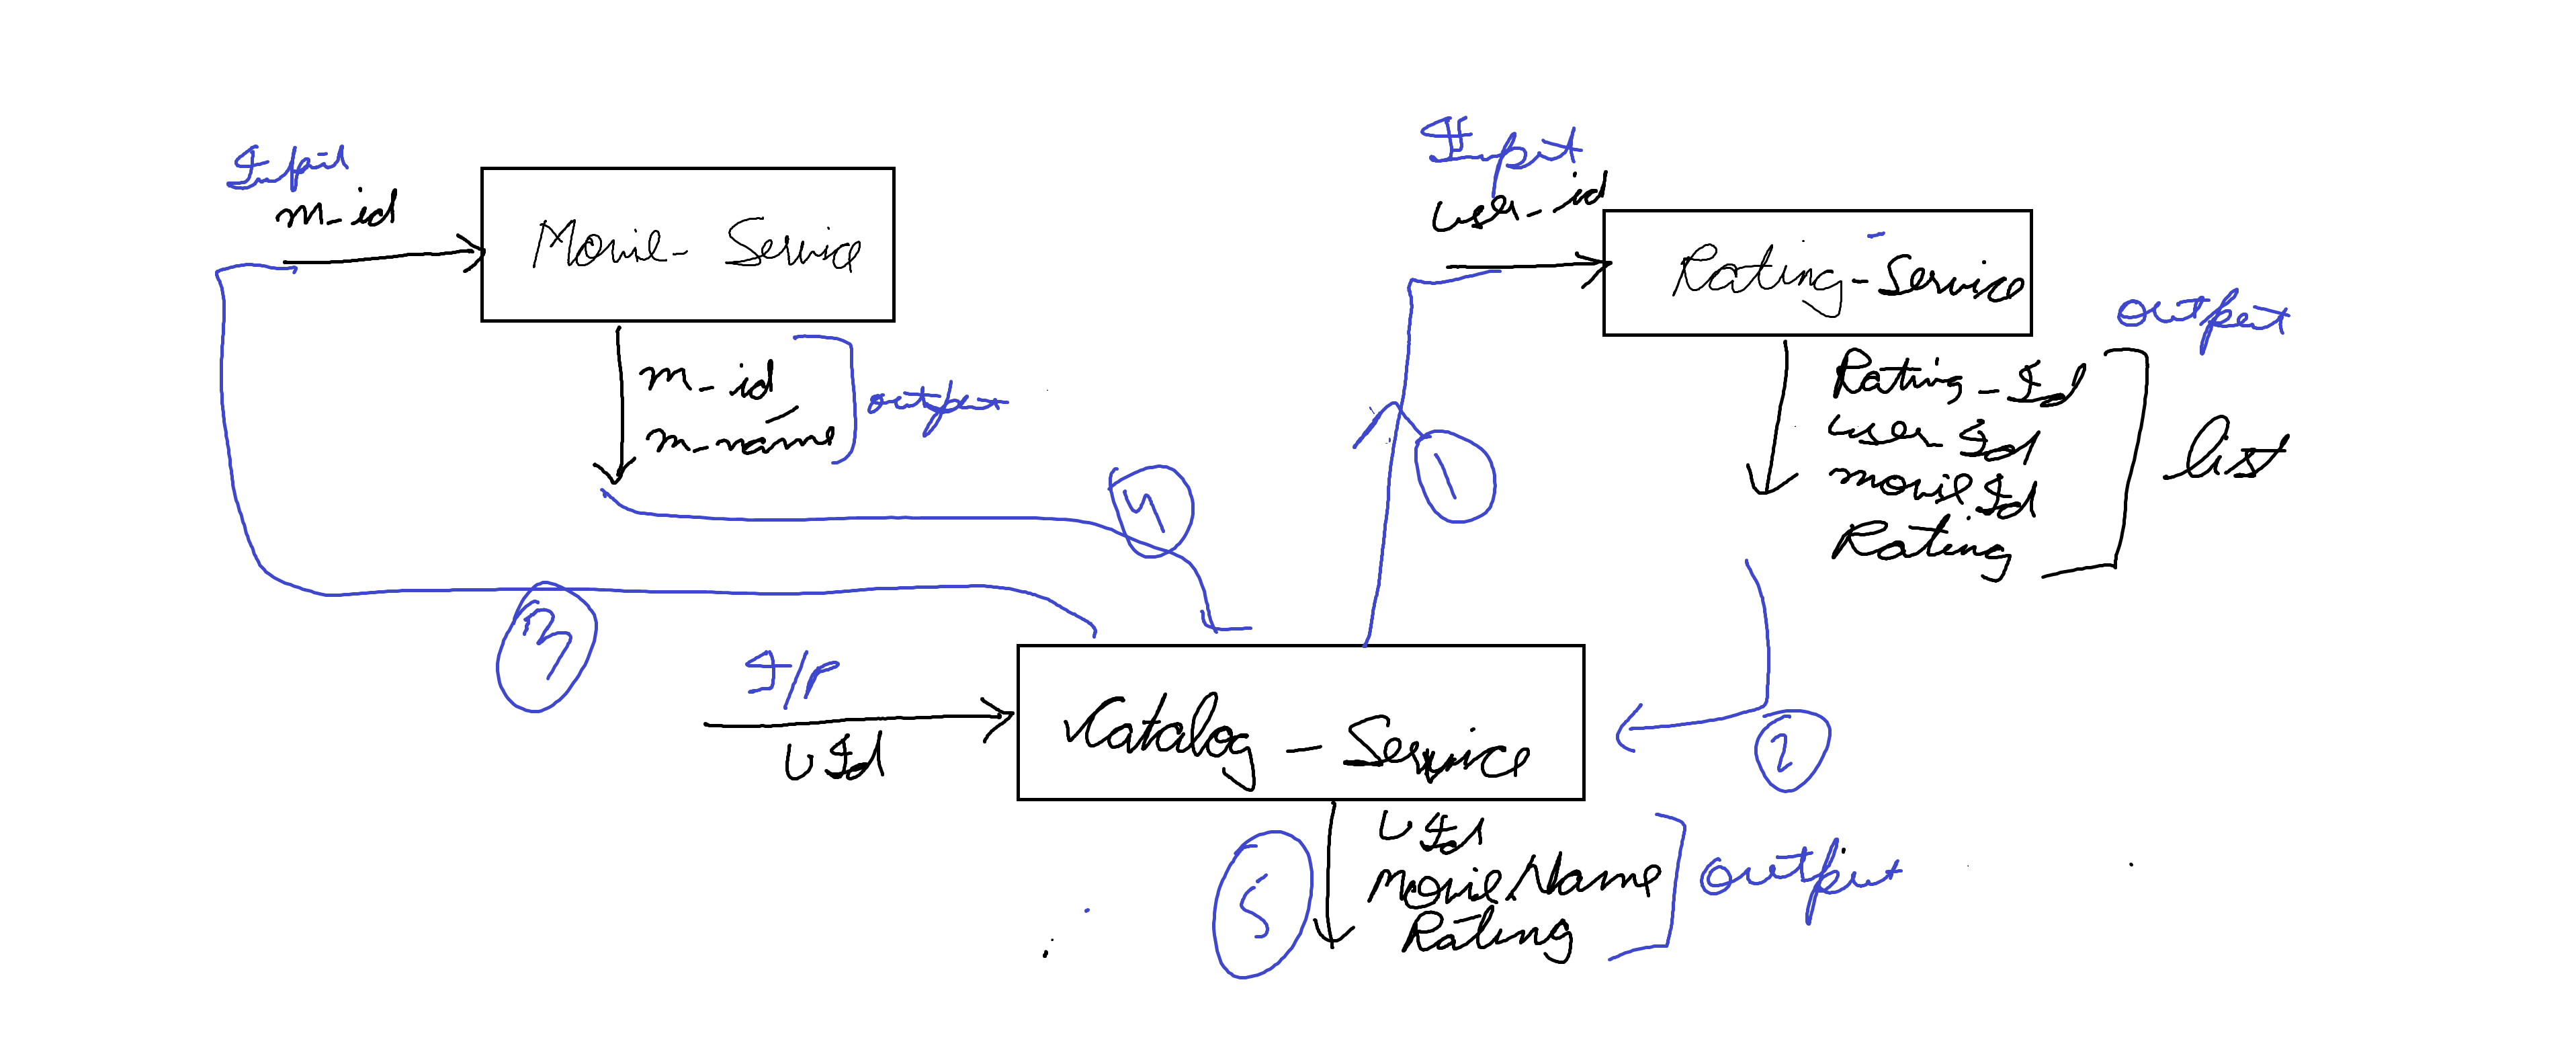 Input
m-id
Movie-Service
m-id
m-name
output
Input
user-id
Rating-Service
output
Rating-Id
user Id
movie Id
Rating
list
4
1
3
2
I/P
UId
Catalog-Service
5
UId
Movie Name
Rating
output